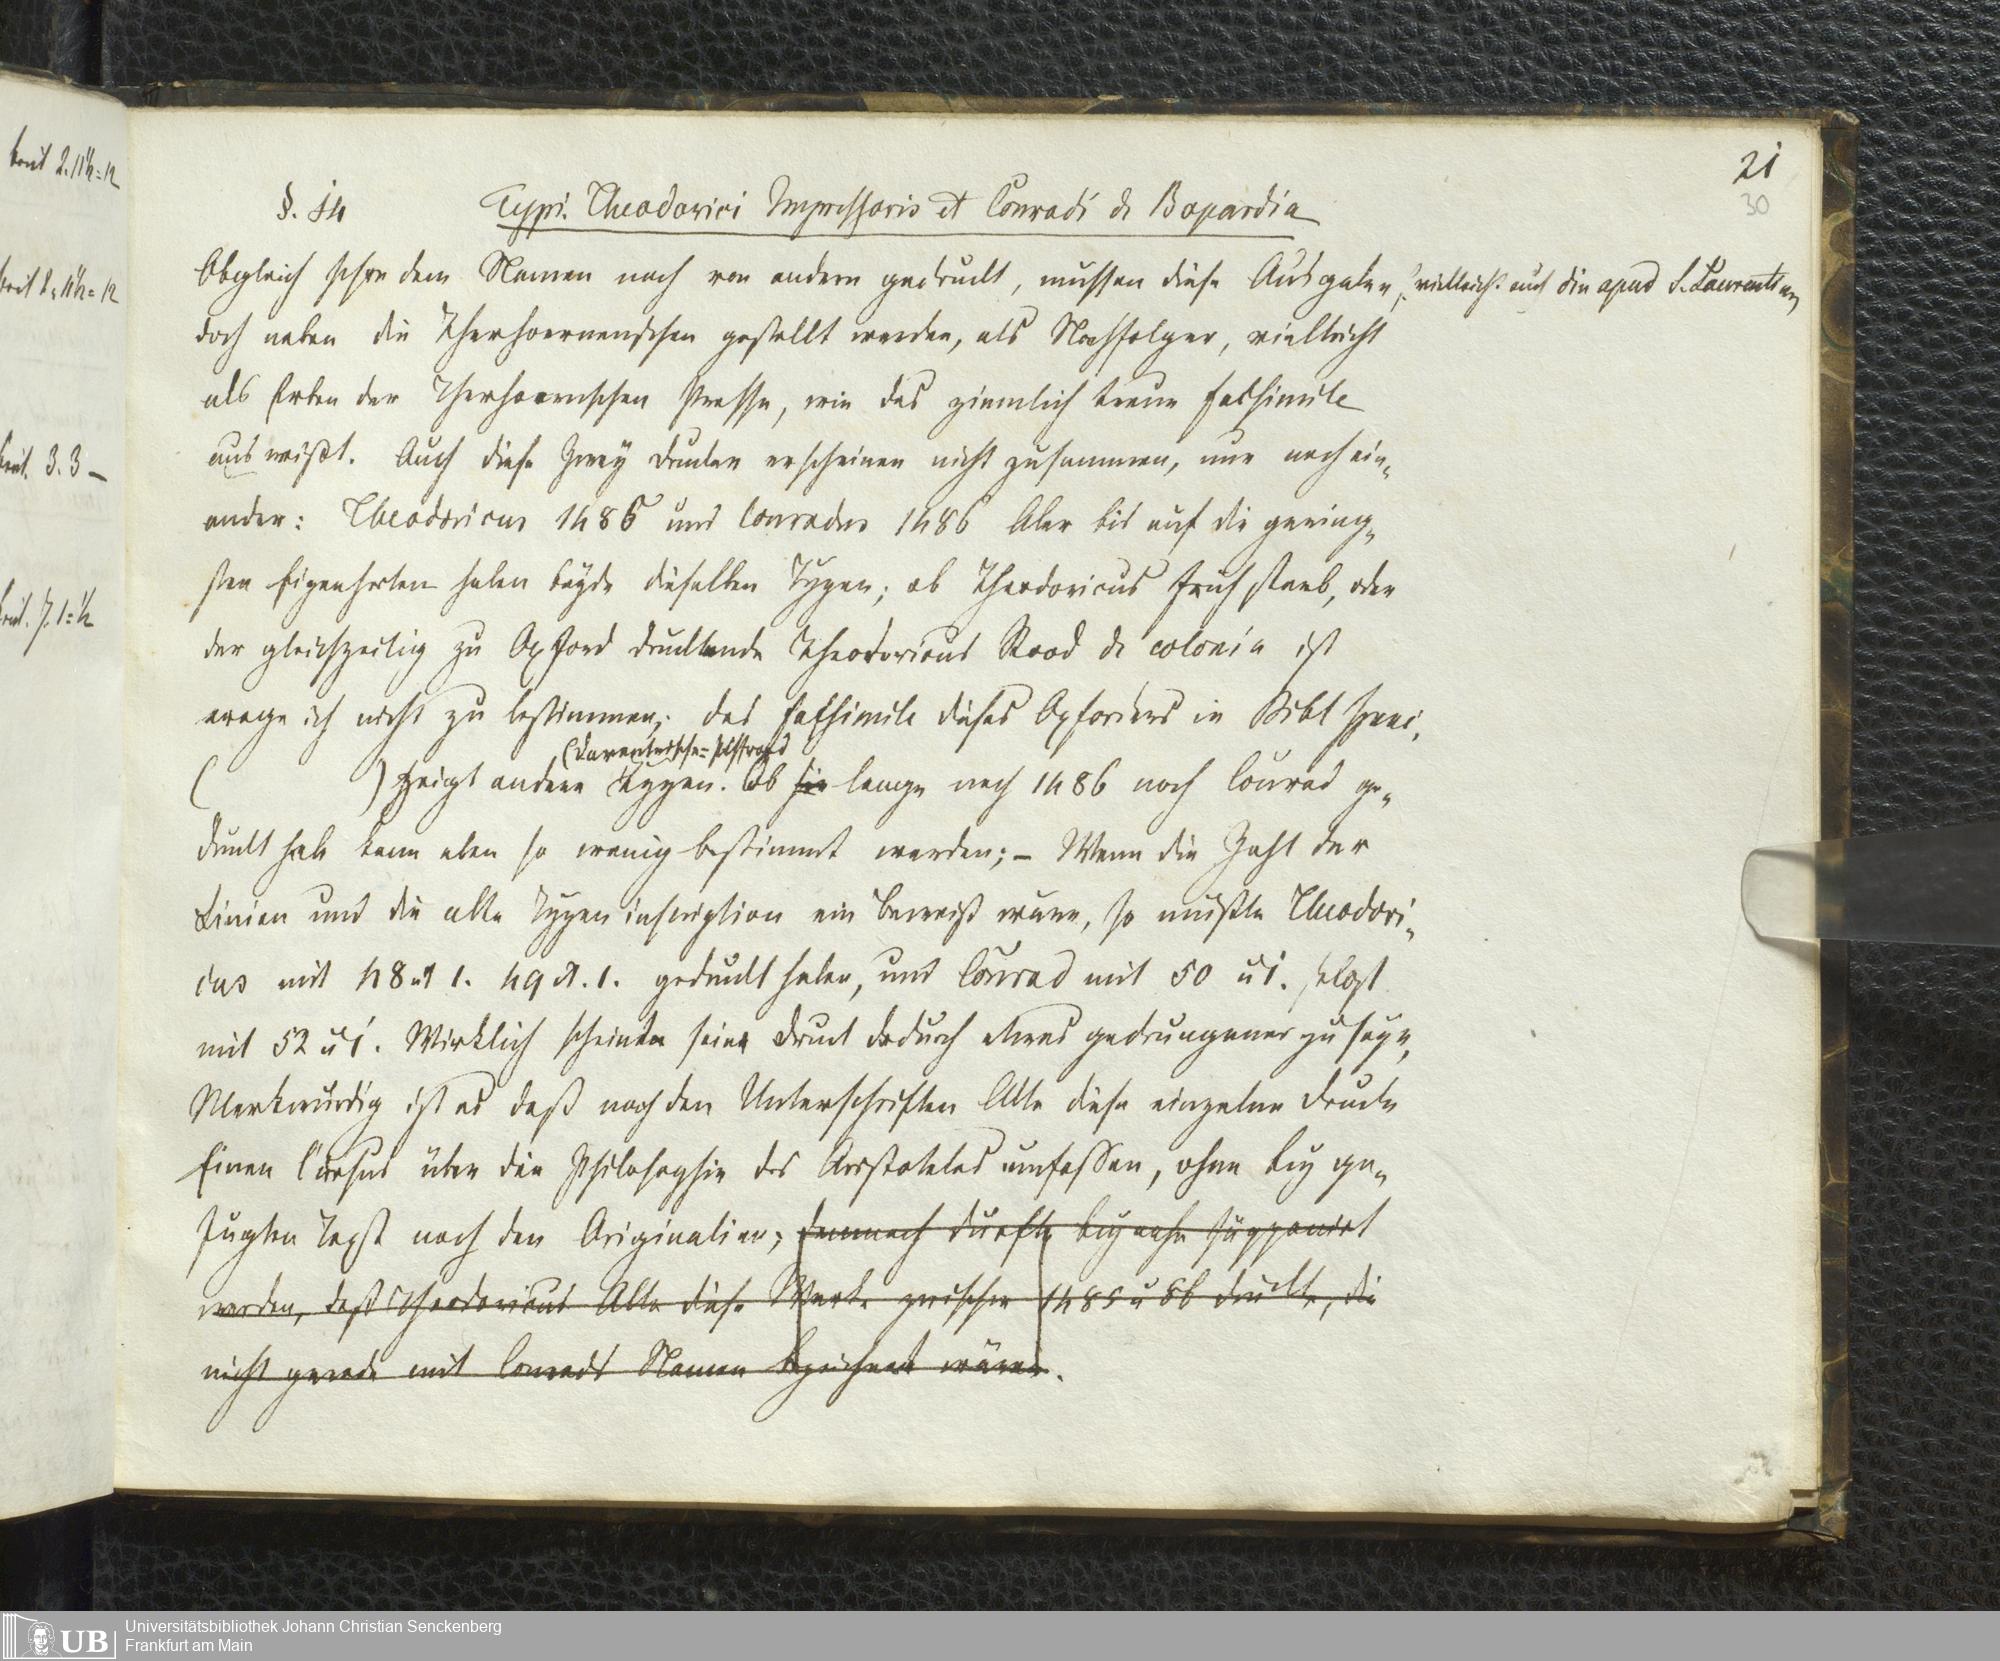 21
30
§. 14 Typi. Theodorici Impressoris et Conradi de Bopardia
Obgleich schon dem Namen nach von andern gedruckt, mussen diese Ausgaben, vielleicht auch die apud S. Laurentium
doch neben die Therhoernenschen gestellt werden, als Nachfolger, vielleicht
als Erben der Therhoernschen Presse, wie das ziemlich treue Facsimile
ausweißt. Auch diese zwey Drucker erscheinen nicht zusammen, nur nach ein-
ander: Theodoricus 1486 und Conradus 1486 Aber bis auf die gering-
sten Eigenheiten haben beyde dieselben Typen; ob Theodoricus früh starb, oder
der gleichzeitig zu Oxford druckende Theodoricus Rood de colonia ist
wage ich nicht zu bestimmen; das Facsimile dieses Oxforders in Bibl Spenc.
(Daventrische=Pfaffroed
( ) zeigt andere Typen. Ob sie lange nach 1486 noch Conrad ge-
druckt hab kann eben so wenig bestimmt werden; – Wenn die Zahl der
Linien und die alte Typen inscription ein Beweiß wäre, so müßte Theodori-
cus mit 48 et 1. 49 et. 1. gedruckt haben, und Conrad mit 50 u 1. selbst
mit 52 u 1. Wirklich scheint sein Druck dadurch etwas gedrungener zu seyn,
Merkwürdig ist es daß nach den Unterschriften Alle diese einzelne Drucke
Einen Cursus über die Philosophie des Aristoteles umfassen, ohne bey ge-
fugten Text nach den Originalien; demnach durfte beynahe supponirt
werden, daß Theodoricus Alle diese Werke zwischen 1485 u 86 druckte, die
nicht gerade mit Conrads Namen bezeichnet wären.
breit 2. 11½ = 12
breit 2. 11½ = 12
breit. 3. 3 –
breit. 7. 1 = ½
Universitätsbibliothek Johann Christian Senckenberg
UB Frankfurt am Main